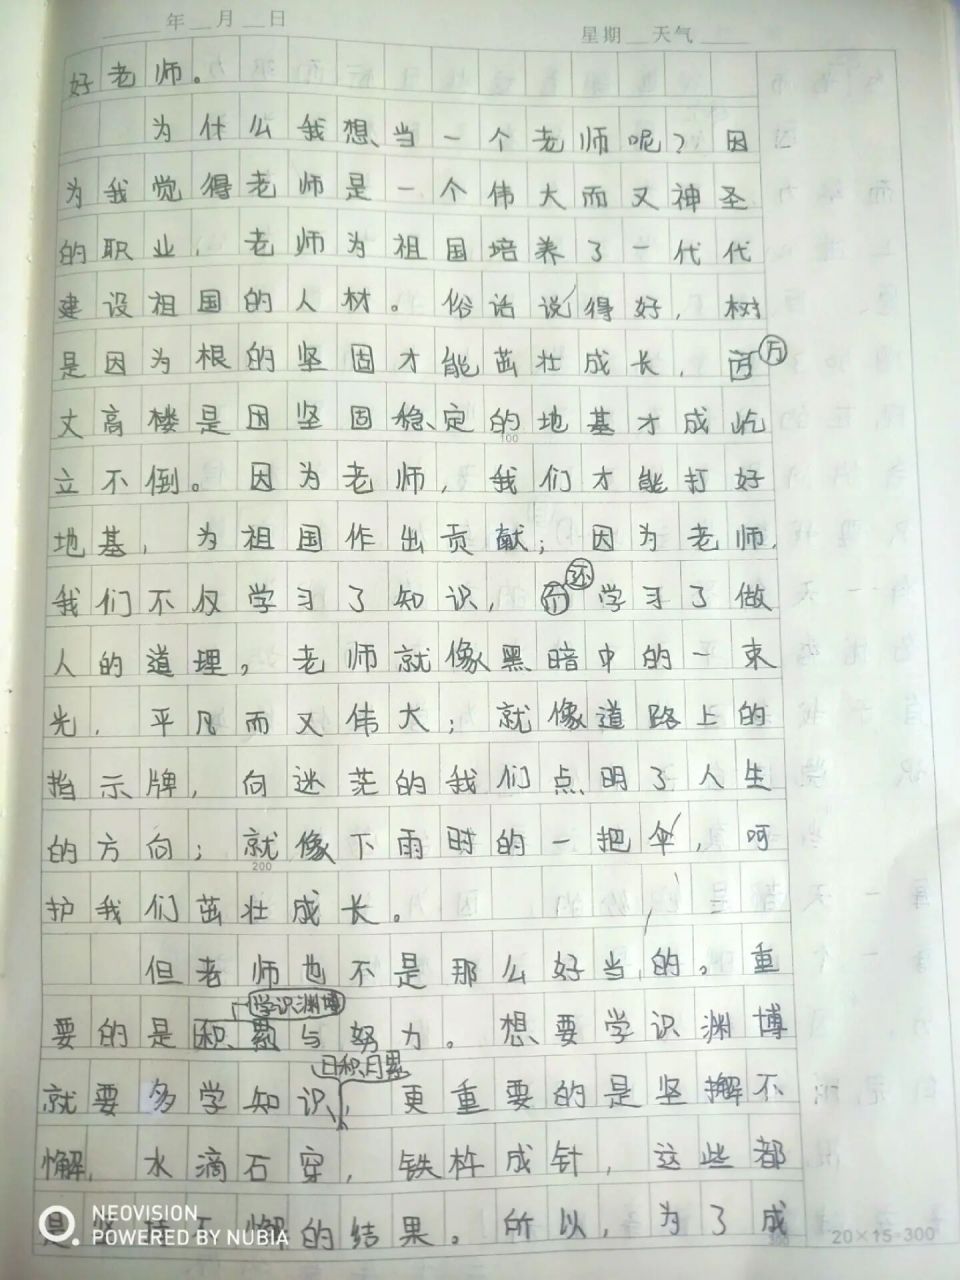 年 月 日 星期 天气
好老师。
为什么我想当一个老师呢？因
为我觉得老师是一个伟大而又神圣
的职业，老师为祖国培养了一代代
建设祖国的人材。俗话说得好，树
是因为根的坚固才能茁壮成长，万
丈高楼是因坚固稳定的地基才成屹
100
立不倒。因为老师，我们才能打好
地基，为祖国作出贡献；因为老师，
我们不仅学习了知识，还学习了做
人的道理。老师就像黑暗中的一束
光，平凡而又伟大；就像道路上的
指示牌，向迷茫的我们点明了人生
的方向；就像下雨时的一把伞，呵
200
护我们茁壮成长。
但老师也不是那么好当的。重
学识渊博
要的是积累与努力。想要学识渊博
日积月累
就要多学知识，更重要的是坚懈不
懈，水滴石穿，铁杵成针，这些都
是坚持不懈的结果。所以，为了成
20×15=300
NEOVISION
POWERED BY NUBIA